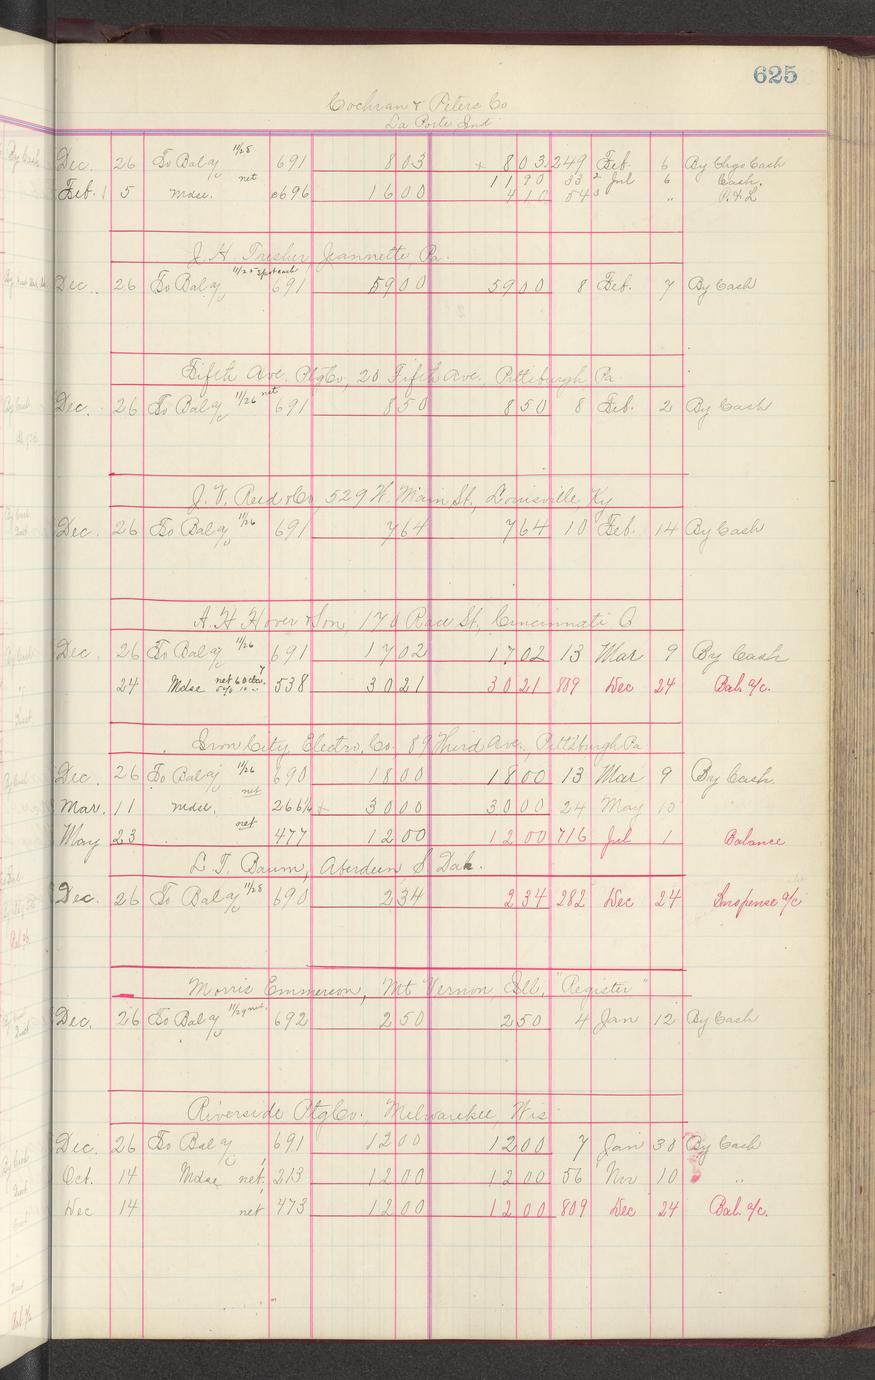 625
Cochran & Peters Co
La Porte Ind
Dec. 26 To Bal a/c 11/28 691 803 803 249 Feb. 6 By Chgo Cash
net 11 90 33 Jul 6 Cash.
Feb. 5 Mdse. 696 16 00 4 10 54 " P. & L
J. H. Trisher, Jeannette, Pa.
Dec. 26 To Bal a/c 691 59 00 59 00 8 Feb. 7 By Cash
Fifth Ave. Ptg Co, 20 Fifth Ave., Pittsburgh Pa.
Dec. 26 To Bal a/c 11/26 net 691 8 50 8 50 8 Feb. 2 By Cash
J. V. Reed & Co, 529 W. Main St., Louisville, Ky
Dec. 26 To Bal a/c 11/26 691 7 64 7 64 10 Feb. 14 By Cash
A. H. Hover & Son, 170 Race St., Cincinnati O
Dec 26 To Bal a/c 11/26 691 17 02 17 02 13 Mar 9 By Cash
24 Mdse net 60 538 30 21 30 21 809 Dec 24 Bal. a/c.
Iron City Electro. Co., 89 Third Ave., Pittsburgh Pa.
Dec. 26 To Bal a/c 11/26 690 18 00 18 00 13 Mar 9 By Cash
Mar. 11 Mdse. net 264 30 00 30 00 24 May
May 23 net 477 12 00 12 00 716 Jul 1 Balance
L. T. Baum, Aberdeen S Dak.
Dec. 26 To Bal a/c 11/28 690 2 34 2 34 282 Dec 24 Suspense a/c
Morris Emmerson, Mt Vernon, Ill, "Register"
Dec. 26 To Bal a/c 11/29 net. 692 2 50 2 50 4 Jan 12 By Cash
Riverside Ptg Co., Milwaukee, Wis
Dec. 26 To Bal a/c 691 12 00 12 00 7 Jan 30 By Cash
Oct. 14 Mdse net, 213 12 00 12 00 56 Nov 10 "
Dec 14 net 473 12 00 12 00 809 Dec 24 Bal. a/c.